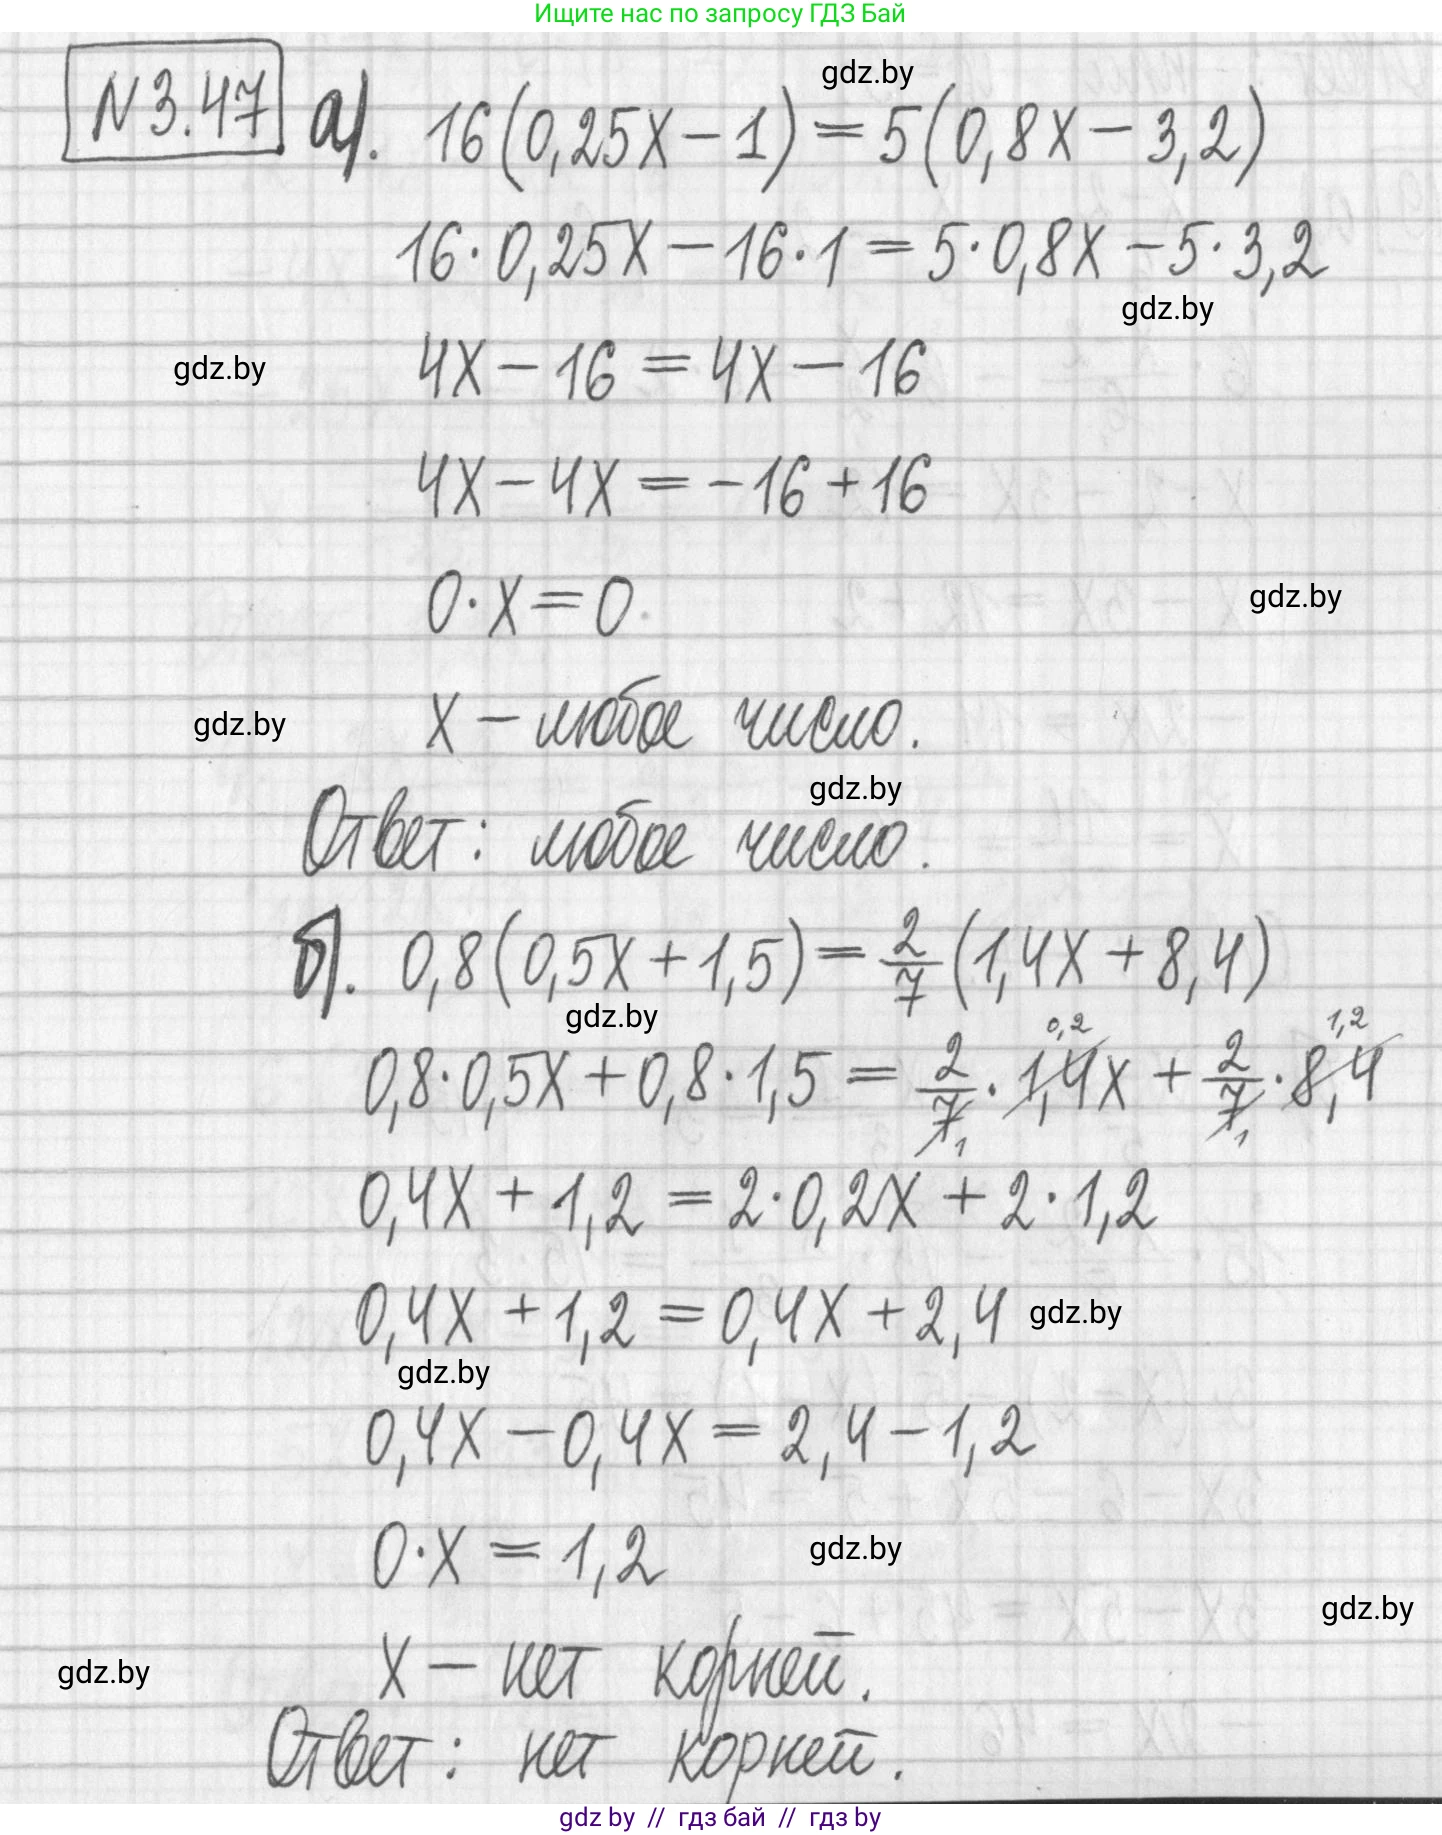 Ищите нас по запросу ГДЗ Бай
gdz.by
N 3.47 а). 16(0,25x − 1) = 5(0,8x − 3,2)
16 · 0,25x − 16 · 1 = 5 · 0,8x − 5 · 3,2
gdz.by
gdz.by
4x − 16 = 4x − 16
4x − 4x = −16 + 16
0 · x = 0
gdz.by
x − любое число.
gdz.by
gdz.by
Ответ: любое число.
б). 0,8(0,5x + 1,5) = 2/7 (1,4x + 8,4)
gdz.by
0,2 1,2
0,8 · 0,5x + 0,8 · 1,5 = 2/7 · 1,4x + 2/7 · 8,4
1 1
0,4x + 1,2 = 2 · 0,2x + 2 · 1,2
0,4x + 1,2 = 0,4x + 2,4 gdz.by
gdz.by
0,4x − 0,4x = 2,4 − 1,2
0 · x = 1,2
gdz.by
gdz.by
x − нет корней.
gdz.by
Ответ: нет корней.
gdz by // гдз бай // гдз by